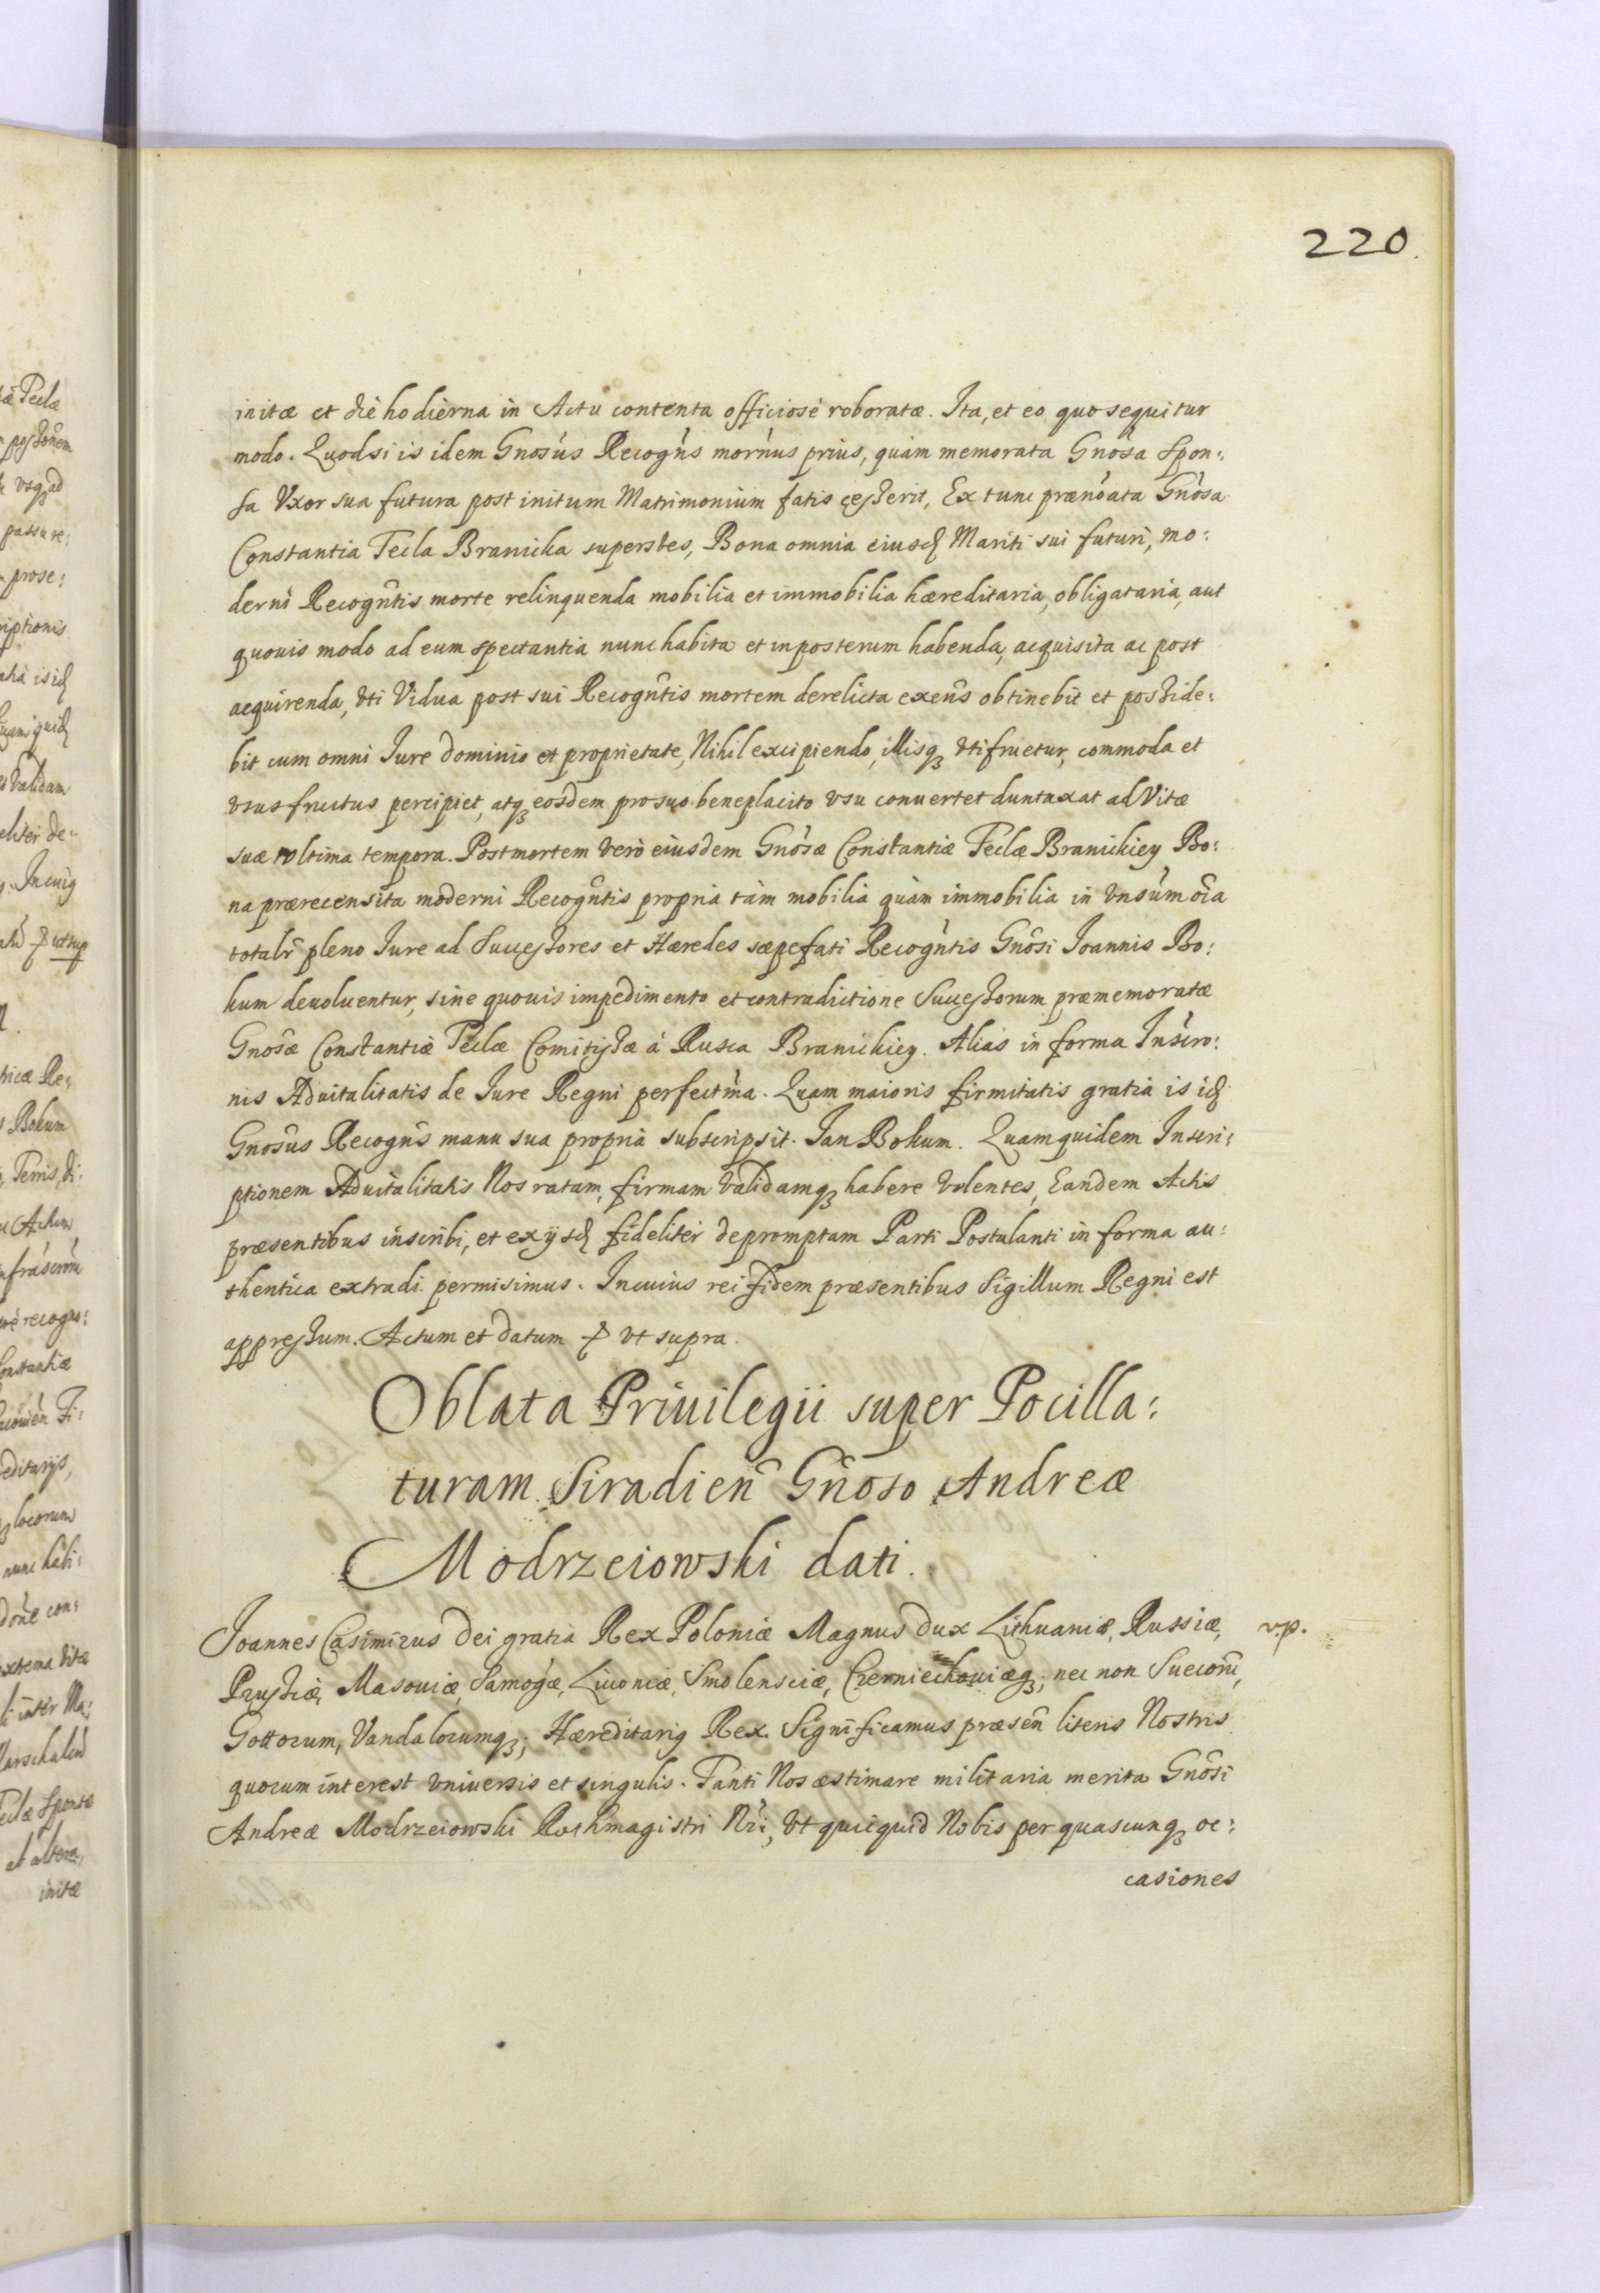 220.
initæ et die hodierna in Actu contenta officiosè roboratæ. Ita, et eo quo sequitur
modo. Quodsi is idem Gnosus Recogns mornus prius, quàm memorata Gnosa Spon:
sa Vxor sua futura post initum Matrimonium fatis cesserit, Ex tunc prænoata Gnosa
Constantia Tecla Branicka superstes, Bona omnia eiusd Mariti sui futuri, mo:
derni Recogntis morte relinquenda mobilia et immobilia hæreditaria, obligataria, aut
quouis modo ad eum spectantia nunc habita et inposterum habenda, acquisita ac post
acquirenda, vti Vidua post sui Recogntis mortem derelicta exens obtinebit et posside:
bit cum omni Iure dominio et proprietate, Nihil excipiendo, illisq vtifruetur, commoda et
vsusfructus percipiet, atq eosdem pro suo beneplacito vsu conuertet duntaxat ad Vitæ
suæ vltima tempora. Post mortem verò eiusdem Gnosæ Constantiæ Teclæ Branickiey Bo:
na prærecensita moderni Recogntis propria tàm mobilia quàm immobilia in vnsum oia
totalr pleno Iure ad Successores et Hæredes sæpefati Recogntis Gnosi Ioannis Bo:
kum deuoluentur, sine quouis impedimento et contradictione Successorum præmemoratæ
Gnosæ Constantiæ Teclæ Comitissæ à Rusca Branickiey. Alias in forma Inscro:
nis Aduitalitatis de Iure Regni perfectma. Quam maioris firmitatis gratia is id
Gnosus Recogns manu sua propria subscripsit. Jan Bokum. Quamquidem Inscri:
ptionem Aduitalitatis Nos ratam, firmam validamq habere volentes, Eandem Actis
præsentibus inscribi, et ex ijsd fideliter depromptam Parti Postulanti in forma au:
thentica extradi permisimus. In cuius rei fidem præsentibus Sigillum Regni est
appressum. Actum et datum & vt supra.
Oblata Priuilegii super Pocilla:
turam Siradien Gnoso Andreæ
Modrzeiowski dati.
Joannes Casimirus Dei gratia Rex Poloniæ Magnus Dux Lithuaniæ, Russiæ,
v.p.
Prussiæ, Masouiæ, Samogæ, Liuoniæ, Smolensciæ, Czerniechouiæq; nec non Suecorũ,
Gottorum, Vandalorumq; Hæreditarig Rex. Significamus præsen literis Nostris
quorum interest vniuersis et singulis. Tanti Nos æstimare militaria merita Gnosi
Andreæ Modrzeiowski Rothmagistri Nri, Vt quicquid Nobis per quascunq oc:
casiones